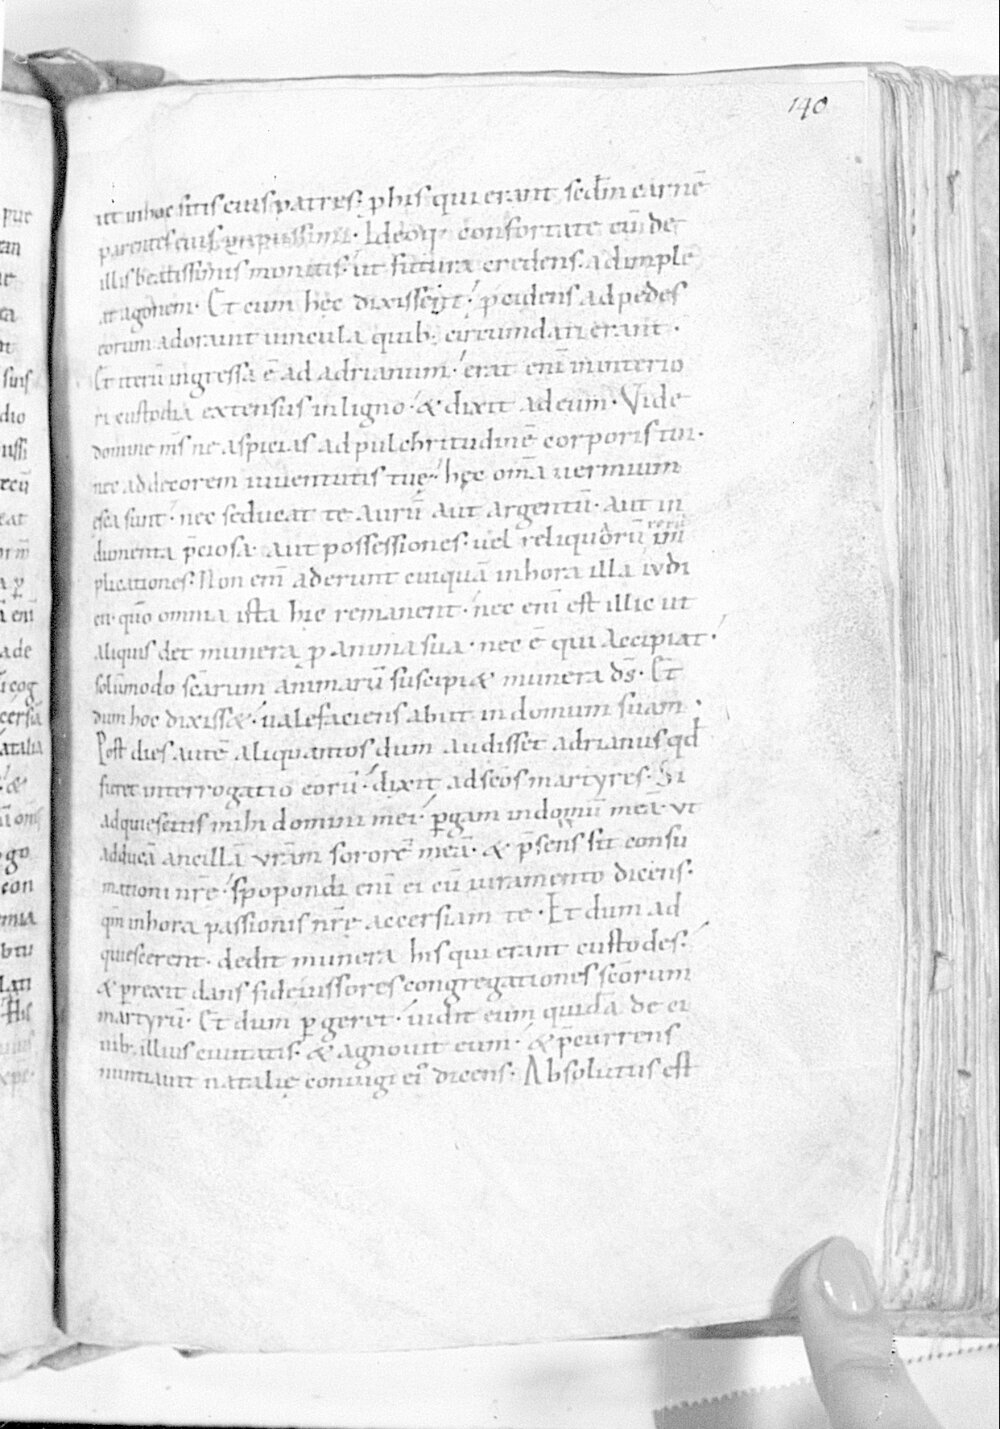 140
ut inhoc sitis eius patres; p his qui erant scdm carnē
parentes eius impiissimi. Ideoq; confortate eū de
illis beatissimis monitis. ut futura credens. adimple
at agonem. Et cum hęc dixisseт. p̄cidens ad pedes
eorum adorauit uincula quib; circumdati erant.
Et iterū ingressa ē ad adrianum. erat enī in interio
ri custodia extensus in ligno. & dixit ad eum. Vide
domine mī ne aspicias ad pulchritudinē corporis tui.
nec ad decorem iuuentutis tuę. hęc om̄a uermium
esca sunt. nec seducat te aurū aut argentū. aut in
dumenta p̄ciosa. aut possessiones. uel reliquorū rerū im
plicationes. Non enī aderunt cuiquā in hora illa iudi
cii. quo omnia ista hic remanent. nec enī est illic ut
aliquis det munera p anima sua. nec ē qui accipiat.
solummodo scārum animarū suscipi& munera d̄s. Et
dum hoc dixiss&. uale faciens abiit in domum suam.
Post dies autē aliquantos dum audisset adrianus qd
fieret interrogatio eorū. dixit ad scōs martyres. Si
adquiescitis mihi domini mei. pgam in domū meā. ut
adducā ancillā vr̄am sororē meā. & p̄sens sit consu
mationi nr̄ę. spopondi enī ei cū iuramento dicens.
qm̄ in hora passionis nr̄ę accersiam te. Et dum ad
quiescerent. dedit munera his qui erant custodes.
& prexit dans fideiussores congregationes scōrum
martyrū. Et dum pgeret. uidit eum quidā de ci
uib; illius ciuitatis. & agnouit eum. & p̄currens
nuntiauit natalię coniugi ei' dicens. Absolutus est